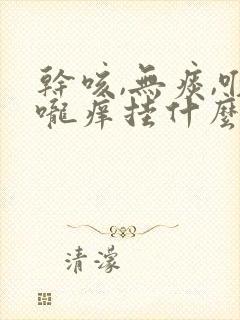 幹咳,無痰,喉
嚨癢挂什麼
清濛